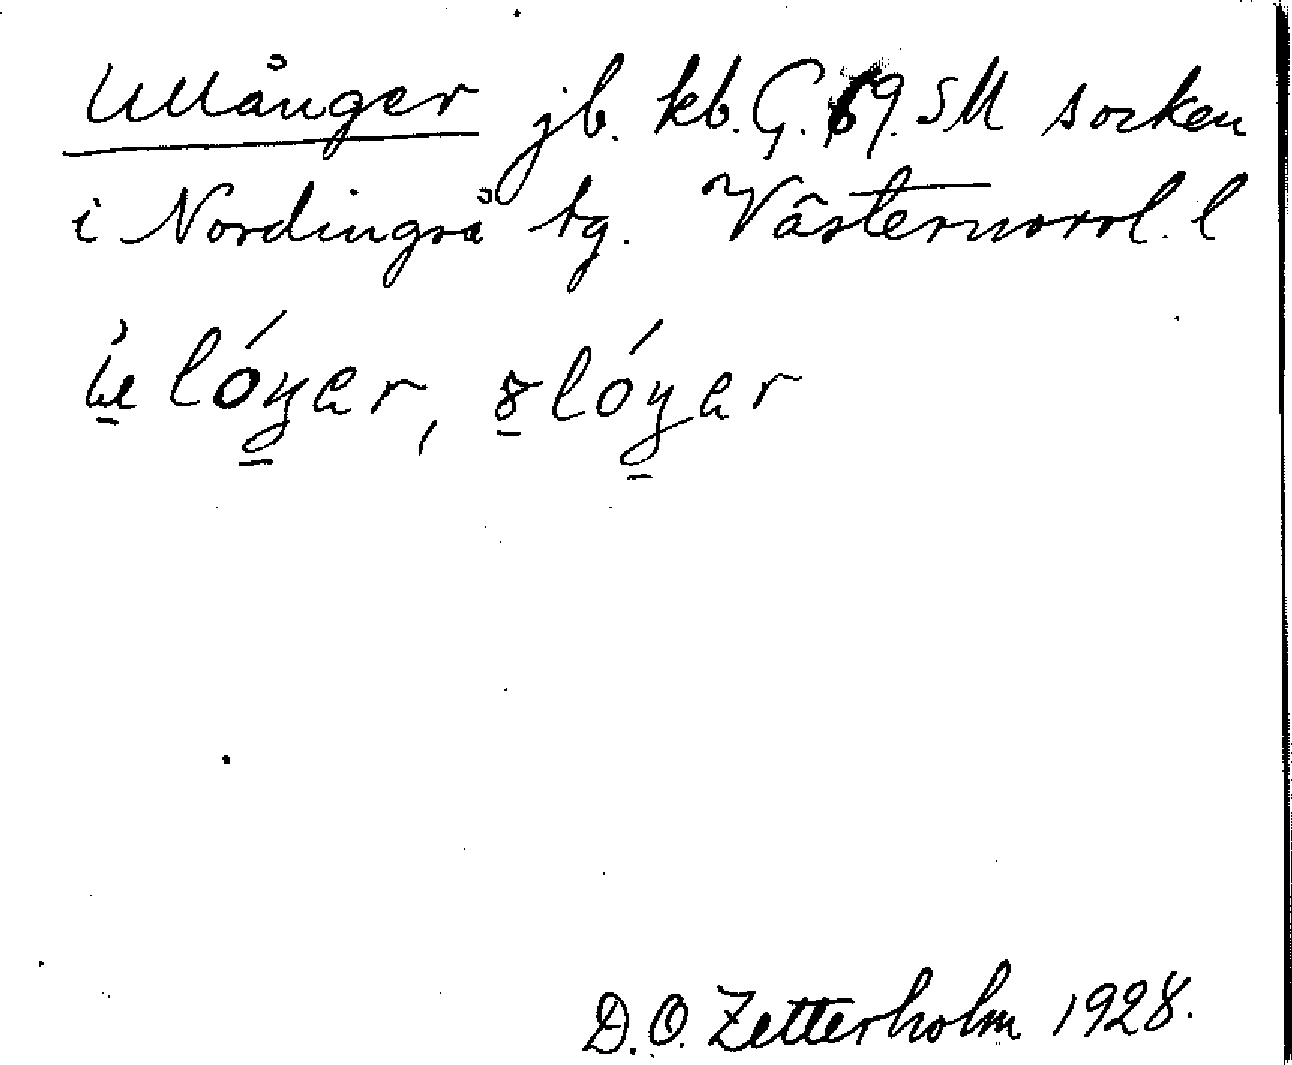 Ullånger jb. kb. G. 69. SM socken
i Nordingrå tg. Västernorrl. l
D.O. Zetterholm 1928.